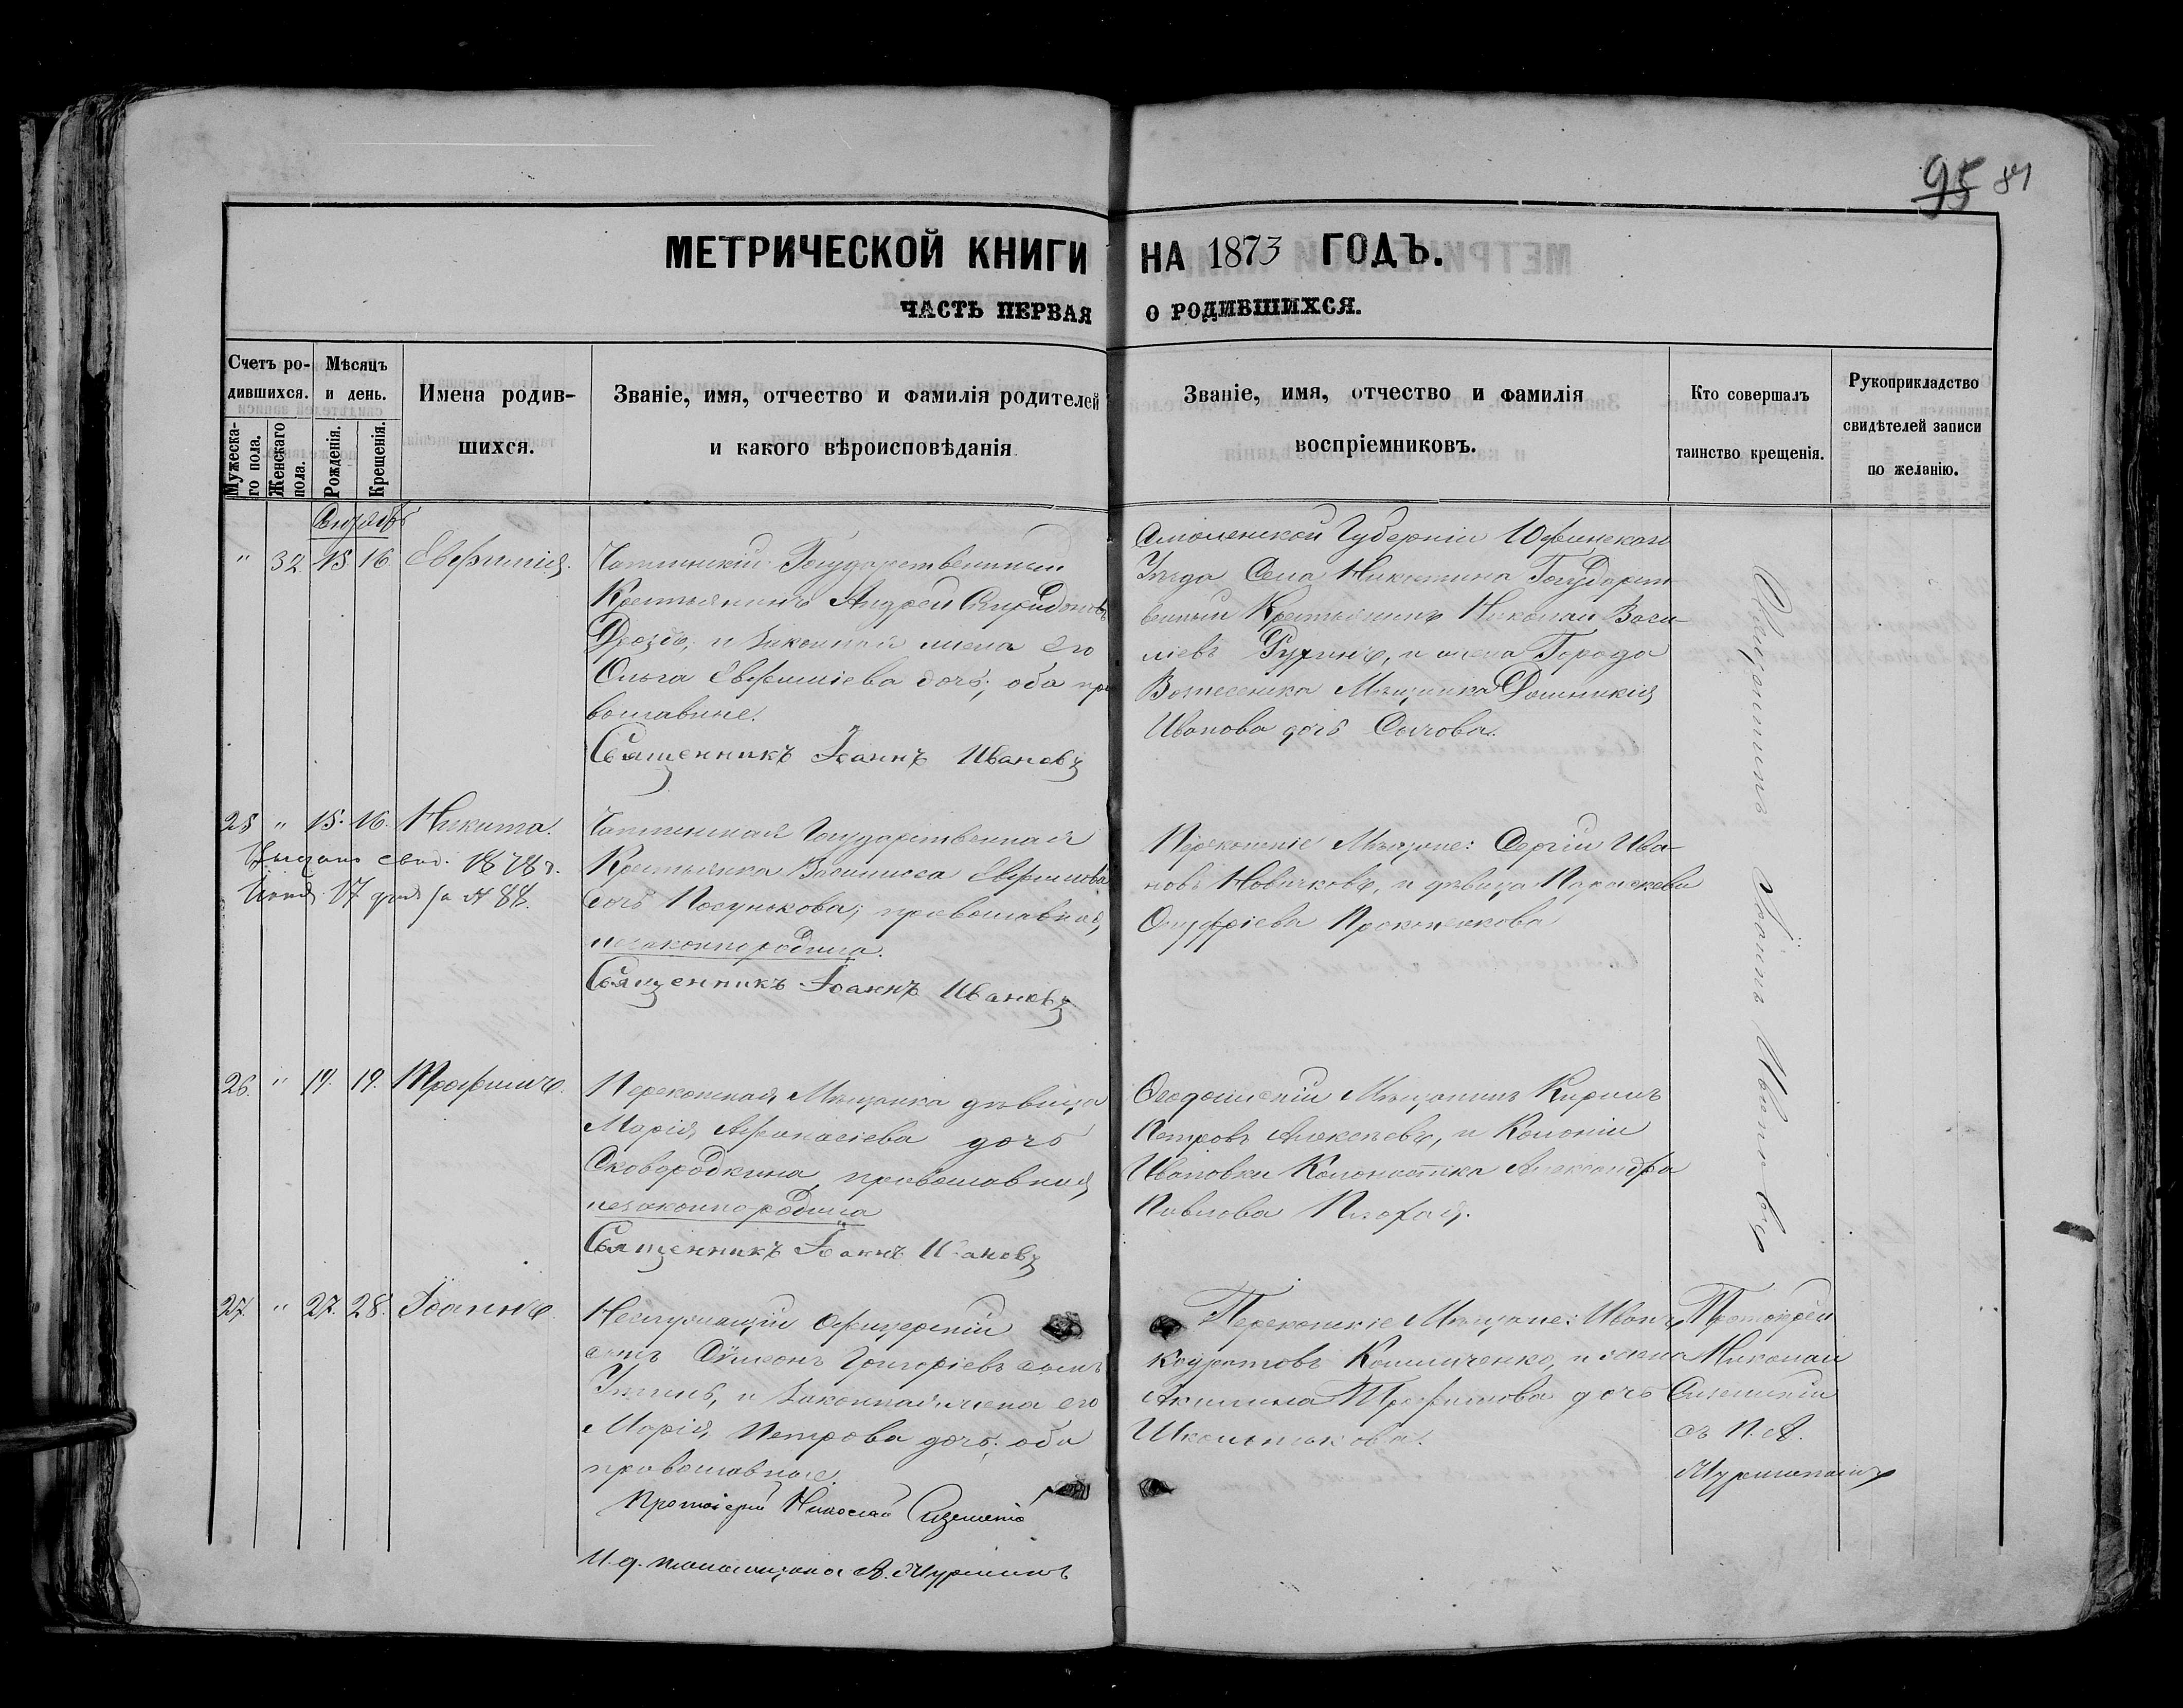 95 87
МЕТРИЧЕСКОЙ КНИГИ НА 1873 ГОДЪ.
ЧАСТЬ ПЕРВАЯ О РОДИВШИХСЯ.
Счетъ ро-
дившихся.
Мужеска-
го пола.
Женскаго
пола.
Мѣсяцъ
и день.
Рожденія.
Крещенія.
Имена родив-
шихся.
Званіе, имя, отчество и фамилія родителей
и какого вѣроисповѣданія
Званіе, имя, отчество и фамилія
воспріемниковъ.
Кто совершалъ
таинство крещенія.
Рукоприкладство
свидѣтелей записи
по желанію.
" 32 15 16 Евфимія.
Государственный
Крестьянинъ Андрей Спиридоновъ
Дроздъ, и законная жена его
Ольга Евфиміева дочь, оба пра
вославные.
Священникъ Іоаннъ Ивановъ
Смоленской Губерніи Юхновскаго
Уѣзда Села Никитина Государст
венный Крестьянинъ Николай Васи-
ліевъ и жена Города
Вознесенска Мѣщанка Домникія
Иванова дочь Сычова.
Священникъ Іоаннъ Ивановъ
25 " 15. 16. Никита.
Выдано свид. 1878 г.
17 дня за № 88.
Государственная
Крестьянка Василисса Евфимова
дочь Посунькова, православная,
незаконнорожденна.
Священникъ Іоаннъ Ивановъ
Перекопскіе Мѣщане: Сергій Ива-
новъ Новичковъ, и дѣвица Параскева
Онуфріева Прокопенкова
26. " 19. 19. Трофимъ.
Перекопская Мѣщанка дѣвица
Марія Афанасіева дочь
Сковородкина, православная
незаконнорожденна
Священникъ Іоаннъ Ивановъ
Ѳеодосійскій Мѣщанинъ Кирилъ
Петровъ Алексѣевъ, и Колоніи
Ивановки Колонистка Александра
Павлова
27. " 27. 28. Іоаннъ
Неслужащій Офицерскій
сынъ Сѵмеонъ Григоріевъ сынъ
и законная жена его
Марія Петрова дочь оба
православные.
Протоіерей Николай
И. д. псаломщика А. Муръ
Перекопскіе Мѣщане: Иванъ
Кондратовъ и жена
Акилина Трофимова дочь
Школьникова.
Протоіерей
Николай
съ П. А.